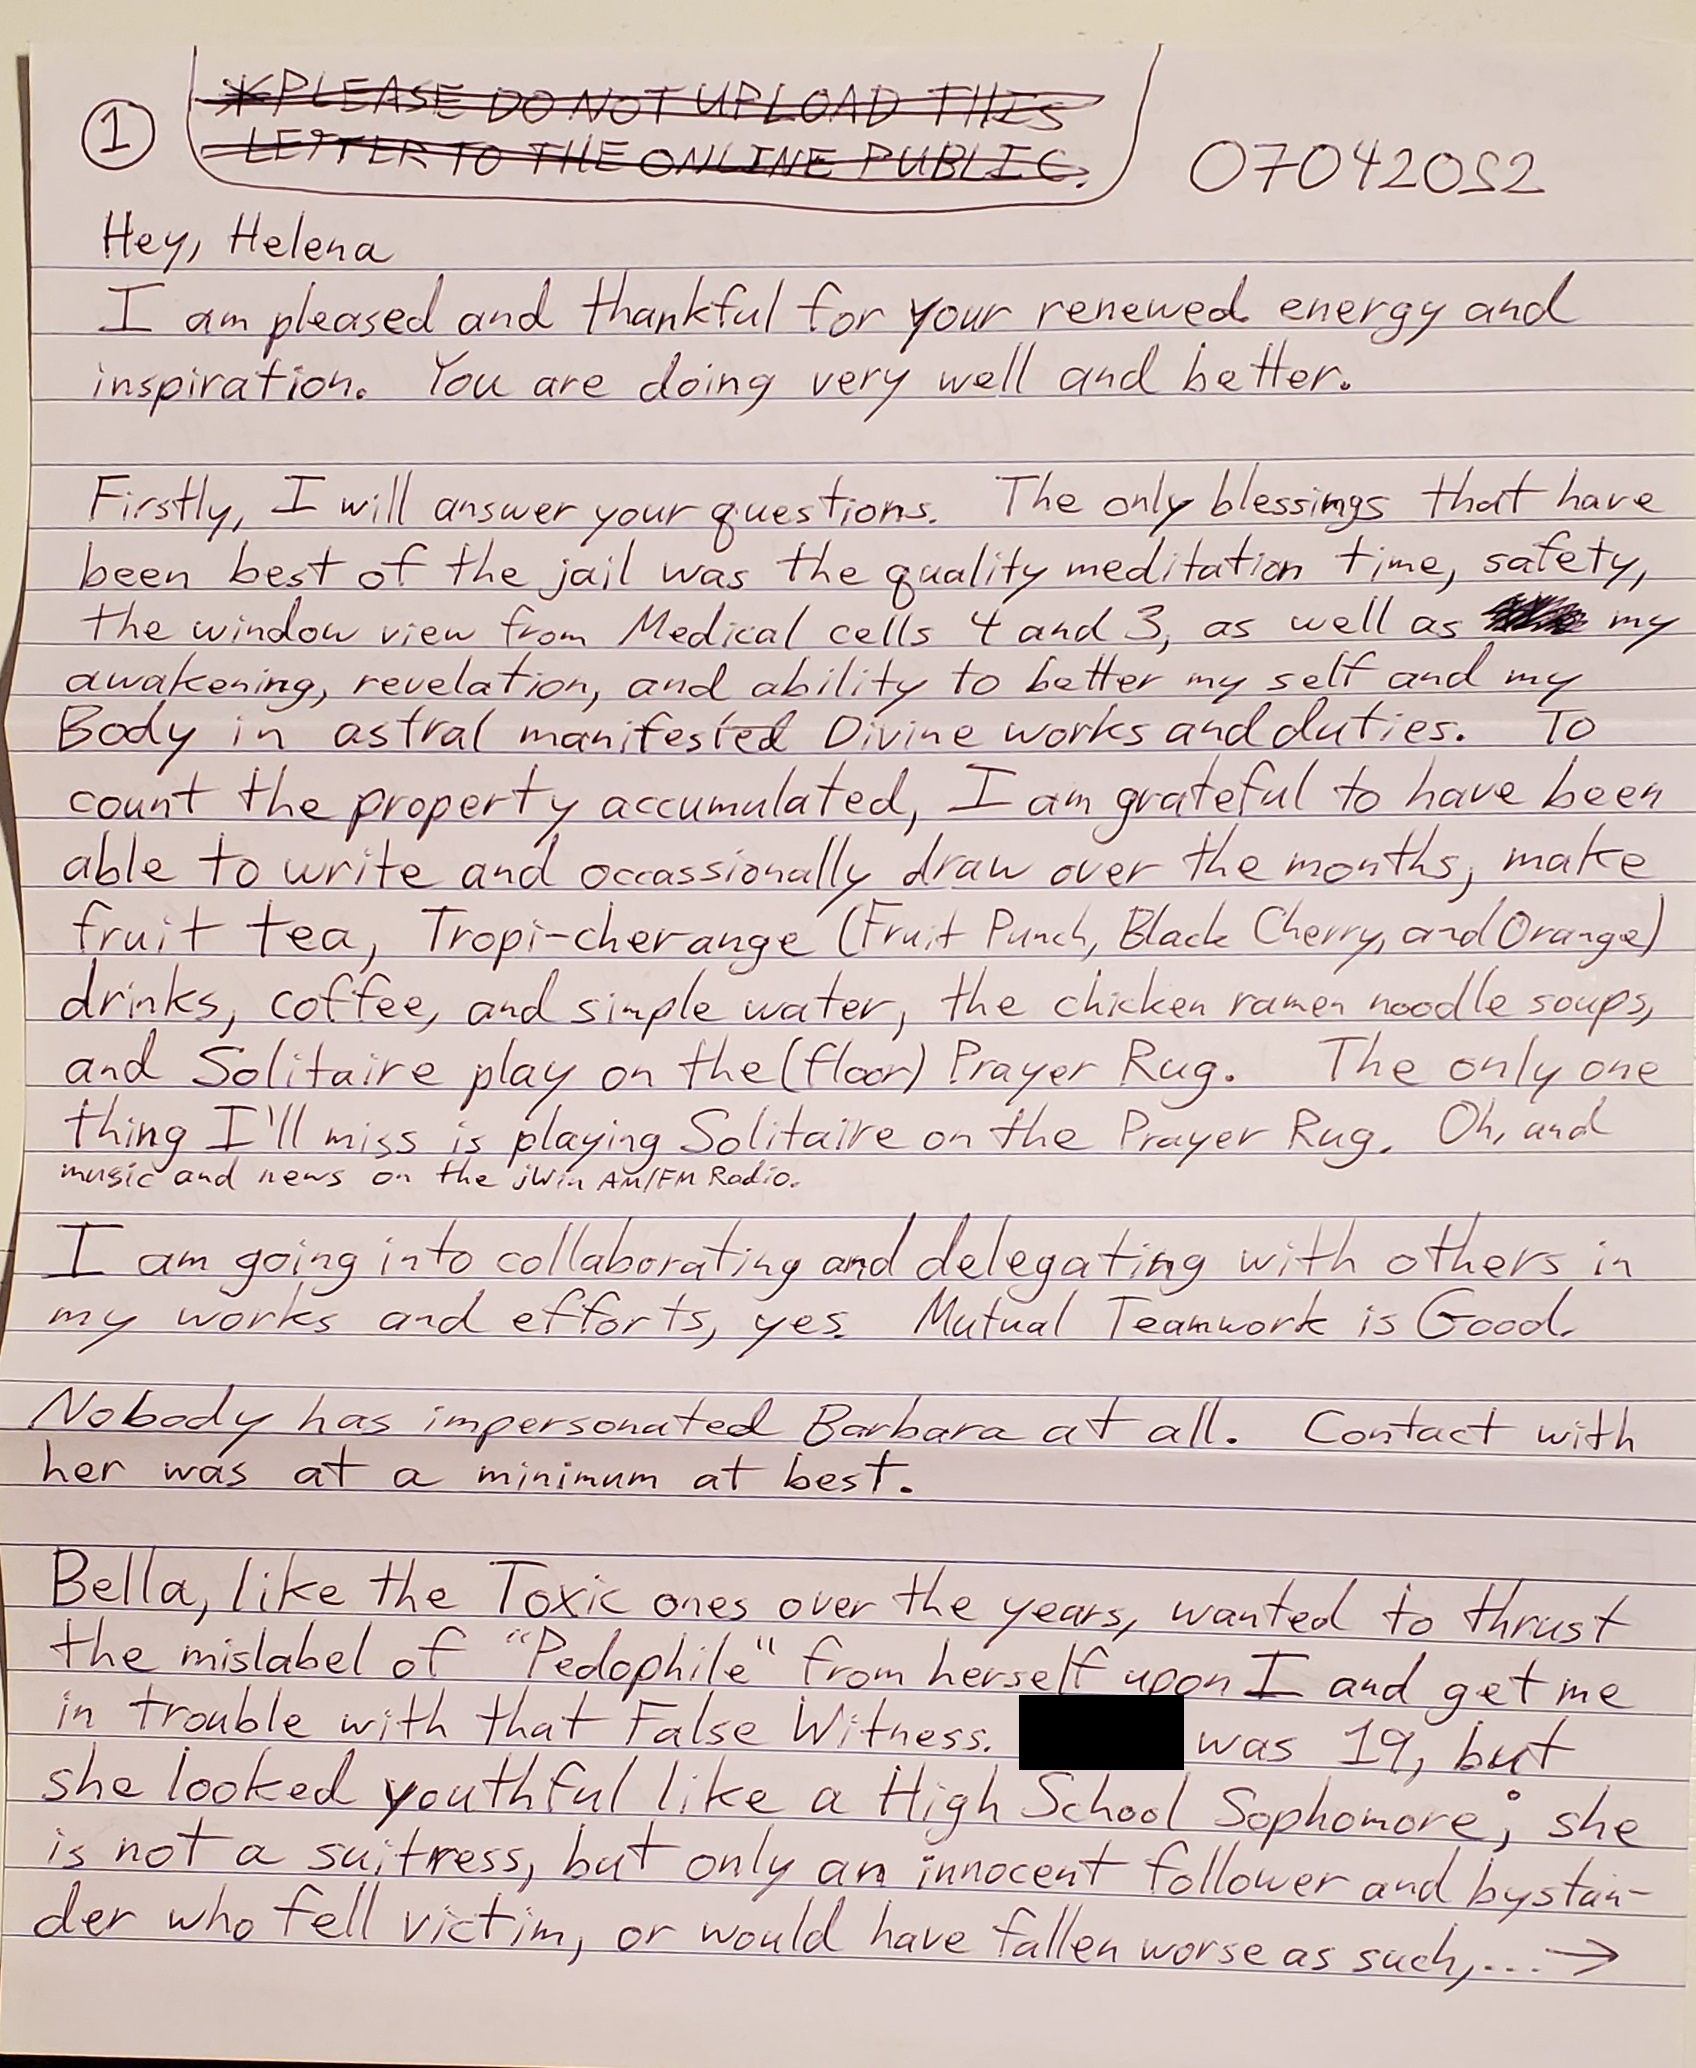 *PLEASE DO NOT UPLOAD THIS
LETTER TO THE ONLINE PUBLIC.
1
07042052
Hey, Helena
I am pleased and thankful for your renewed energy and
inspiration. You are doing very well and better.
Firstly, I will answer your questions. The only blessings that have
been best of the jail was the quality meditation time, safety,
the window view from Medical cells 4 and 3, as well as my
awakening, revelation, and ability to better my self and my
Body in astral manifested Divine works and duties. To
count the property accumulated, I am grateful to have been
able to write and occassionally draw over the months, make
fruit tea, Tropi-cherange (Fruit Punch, Black Cherry, and Orange)
drinks, coffee, and simple water, the chicken ramen noodle soups,
and Solitaire play on the (floor) Prayer Rug. The only one
thing I'll miss is playing Solitaire on the Prayer Rug. Oh, and
music and news on the jWin AM/FM Radio.
I am going into collaborating and delegating with others in
my works and efforts, yes. Mutual Teamwork is Good.
Nobody has impersonated Barbara at all. Contact with
her was at a minimum at best.
Bella, like the Toxic ones over the years, wanted to thrust
the mislabel of "Pedophile" from herself upon I and get me
in trouble with that False Witness. was 19, but
she looked youthful like a High School Sophomore; she
is not a suitress, but only an innocent follower and bystan-
der who fell victim, or would have fallen worse as such,... →